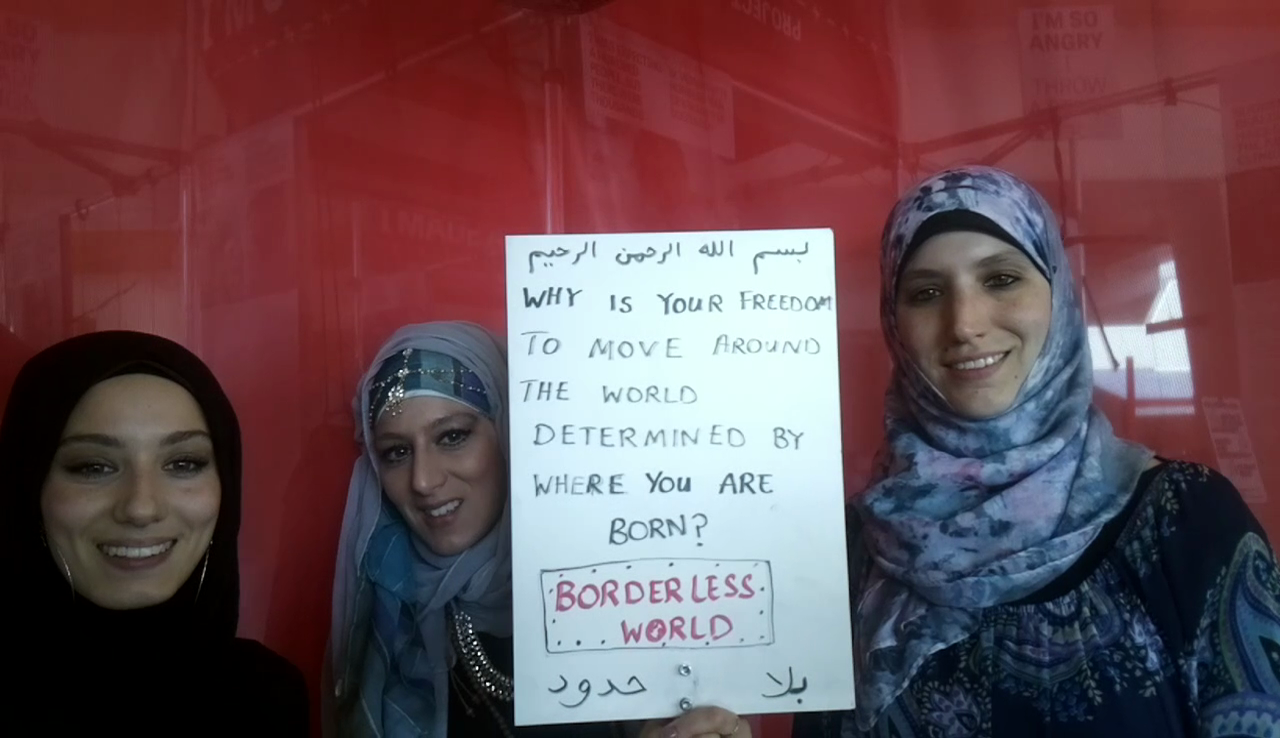 PROJECT
I'M SO
ANGRY
I
THROW
بسم الله الرحمن الرحيم
WHY IS YOUR FREEDOM
TO MOVE AROUND
THE WORLD
DETERMINED BY
WHERE YOU ARE
BORN?
BORDERLESS
WORLD
بلا حدود